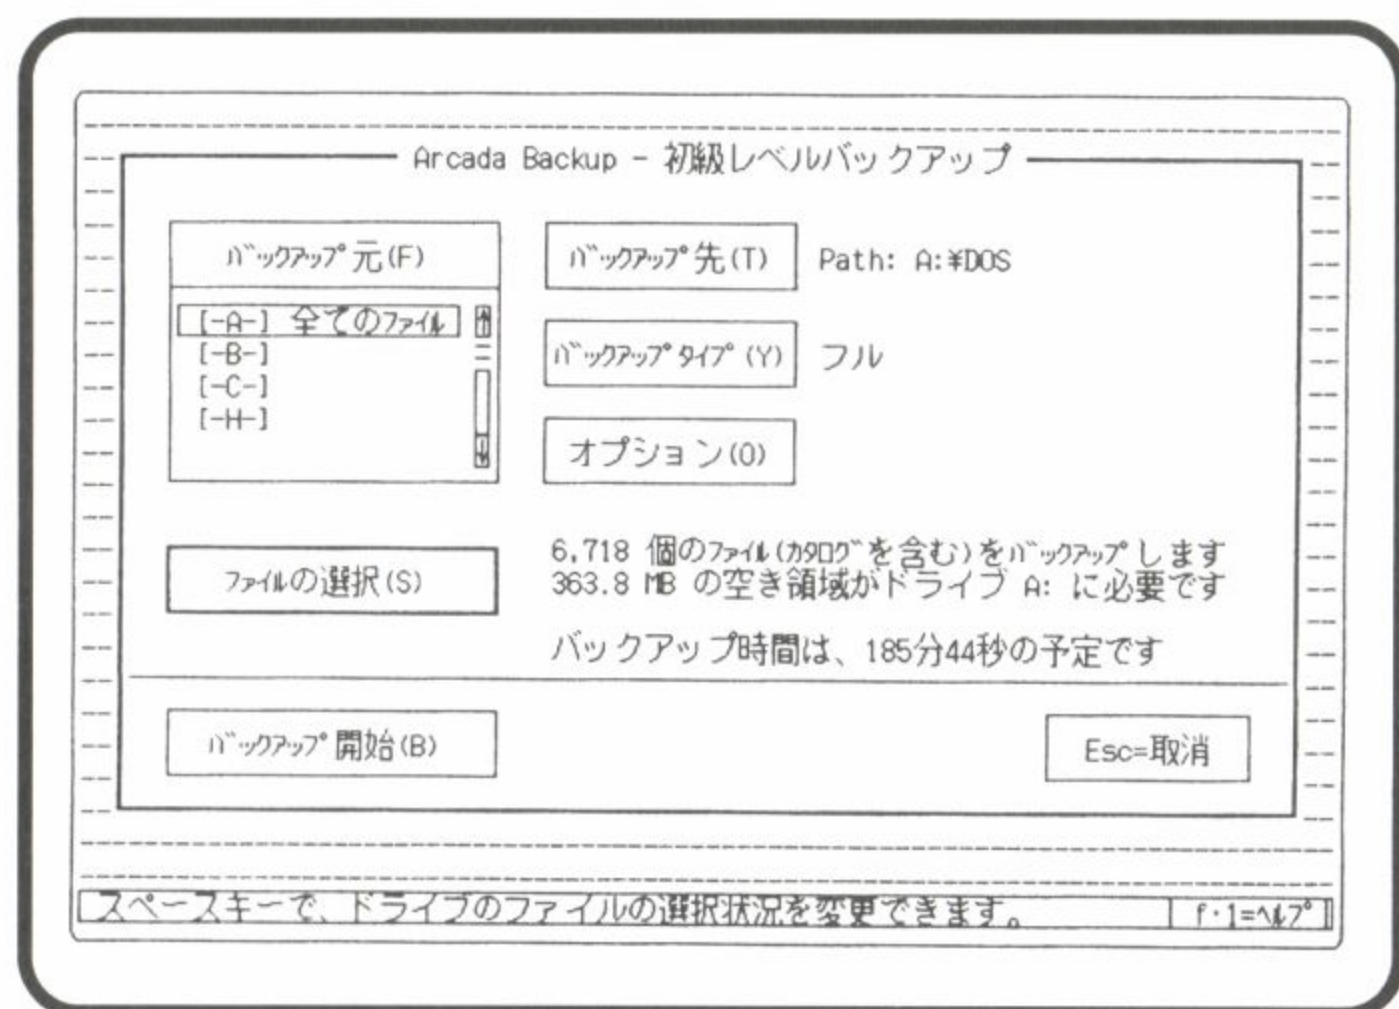 Arcada Backup - 初級レベルバックアップ
ﾊﾞｯｸｱｯﾌﾟ元(F)
[-A-] 全てのﾌｧｲﾙ
[-B-]
[-C-]
[-H-]
ﾊﾞｯｸｱｯﾌﾟ先(T) Path: A:¥DOS
ﾊﾞｯｸｱｯﾌﾟﾀｲﾌﾟ(Y) フル
オプション(O)
ﾌｧｲﾙの選択(S)
6,718 個のﾌｧｲﾙ(ｶﾀﾛｸﾞを含む)をﾊﾞｯｸｱｯﾌﾟします
363.8 MB の空き領域がドライブ A: に必要です
バックアップ時間は、185分44秒の予定です
ﾊﾞｯｸｱｯﾌﾟ開始(B)
Esc=取消
スペースキーで、ドライブのファイルの選択状況を変更できます。
f・1=ﾍﾙﾌﾟ